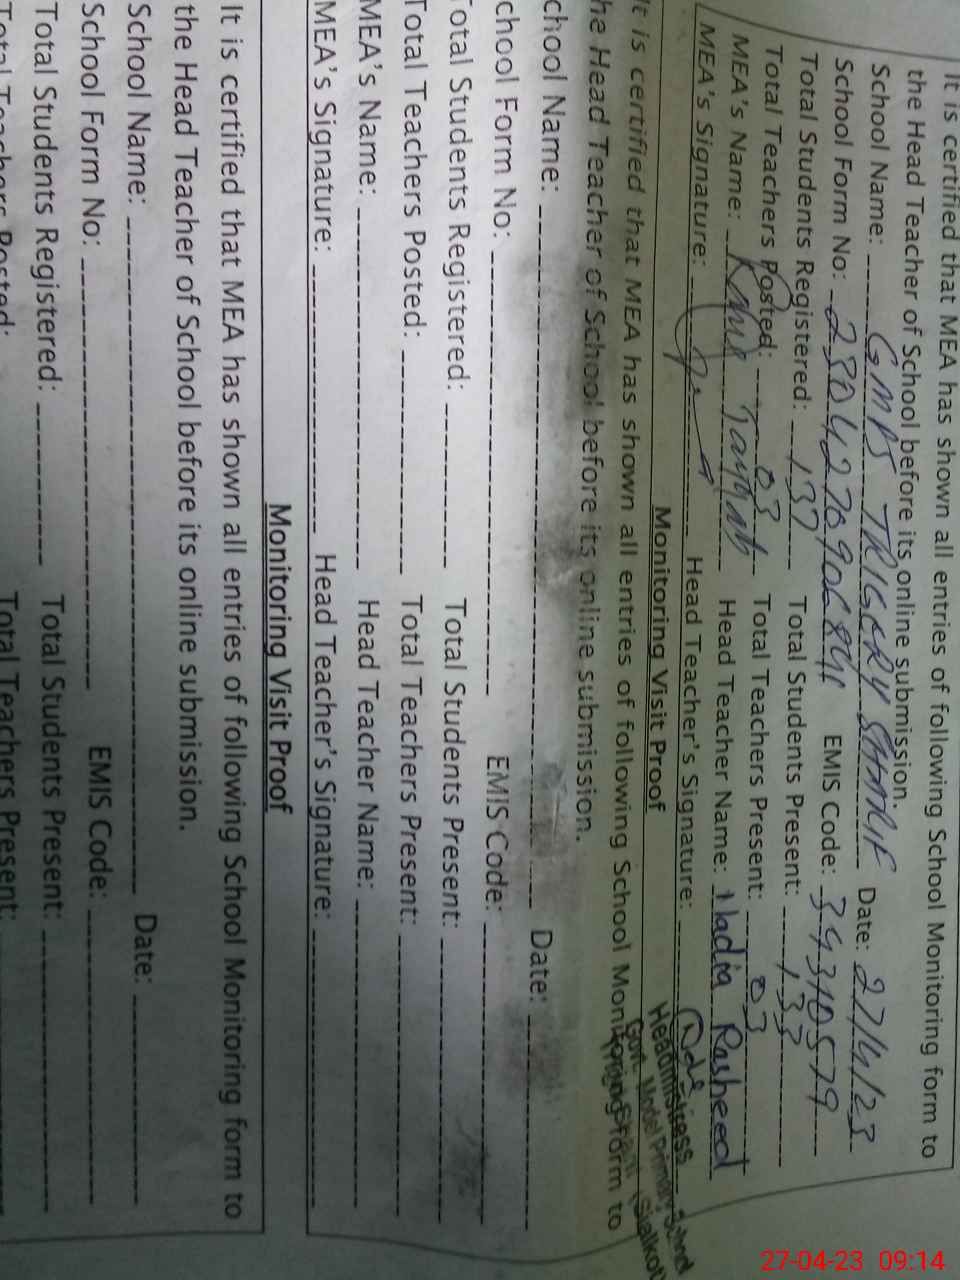 It is certified that MEA has shown all entries of following School Monitoring form to
the Head Teacher of School before its online submission.
School Name: GMPS TRIGERY SHARIF Date: 27/4/23
School Form No: EMIS Code: 34310579
Total Students Registered: 137 Total Students Present: 133
Total Teachers Posted: 03 Total Teachers Present: 03
MEA's Name: Head Teacher Name: Nadia Rasheed
MEA's Signature: Head Teacher's Signature:
Headmistress
Govt. Model Primary School
(Sialkot)
Monitoring Visit Proof
It is certified that MEA has shown all entries of following School Monitoring form to
he Head Teacher of School before its online submission.
chool Name: Date:
chool Form No: EMIS Code:
otal Students Registered: Total Students Present:
Total Teachers Posted: Total Teachers Present:
MEA's Name: Head Teacher Name:
MEA's Signature: Head Teacher's Signature:
Monitoring Visit Proof
It is certified that MEA has shown all entries of following School Monitoring form to
the Head Teacher of School before its online submission.
School Name: Date:
School Form No: EMIS Code:
Total Students Registered: Total Students Present:
Total Teachers Posted: Total Teachers Present:
27-04-23 09:14